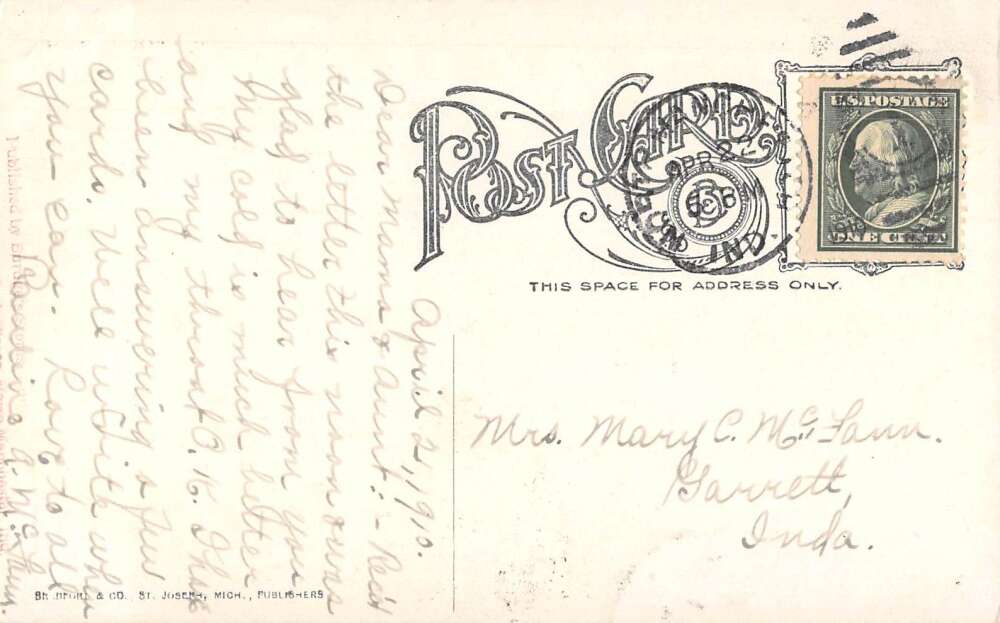 April 2, 1910.
Dear mama & aunt: - Rec'd
the letter this noon & was
glad to hear from you
My cold is much better
and my throat O.K. I have
been answering a few
cards. Well write when
you can. Love to all
A. McFann.
POST CARD
THIS SPACE FOR ADDRESS ONLY.
U.S. POSTAGE
ONE CENT
APR 2
IND.
Mrs. Mary C. McFann.
Garrett,
Inda.
& CO., ST. JOSEPH, MICH., PUBLISHERS
Published by